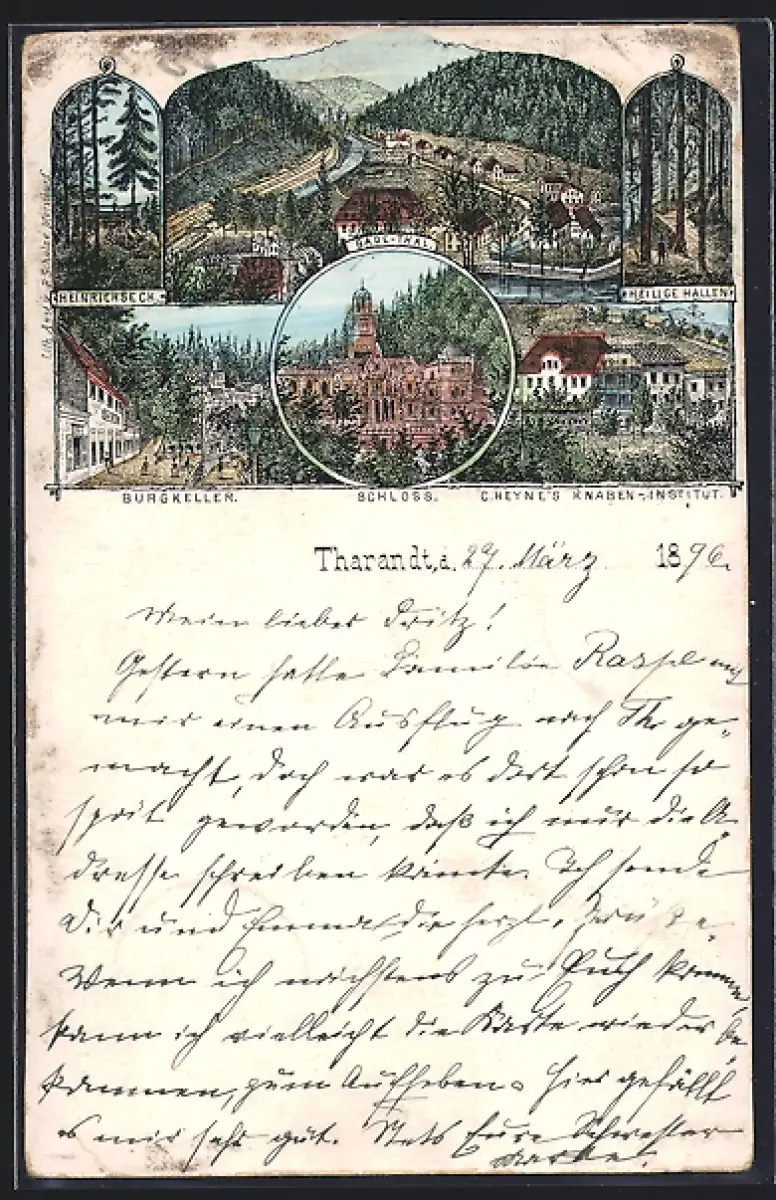 HEINRICHSECK.
BADE-THAL.
HEILIGE HALLEN.
BURGKELLER.
SCHLOSS.
C. HEYNE'S KNABEN-INSTITUT.
Tharandt, d. 27. März 1896.
Mein lieber Fritz!
Gestern hatte Familie mit
mir einen Ausflug nach Th. ge-
macht, doch war es dort schon so
spät geworden, daß ich nur die A-
dresse schreiben konnte. Ich sende
Dir und Emma die herzl. Grüße.
Wenn ich nächstens zu Euch komme,
kann ich vielleicht die Karte wieder be-
kommen, zum Aufheben. Hier gefällt
es mir sehr gut. Stets Eure Schwester